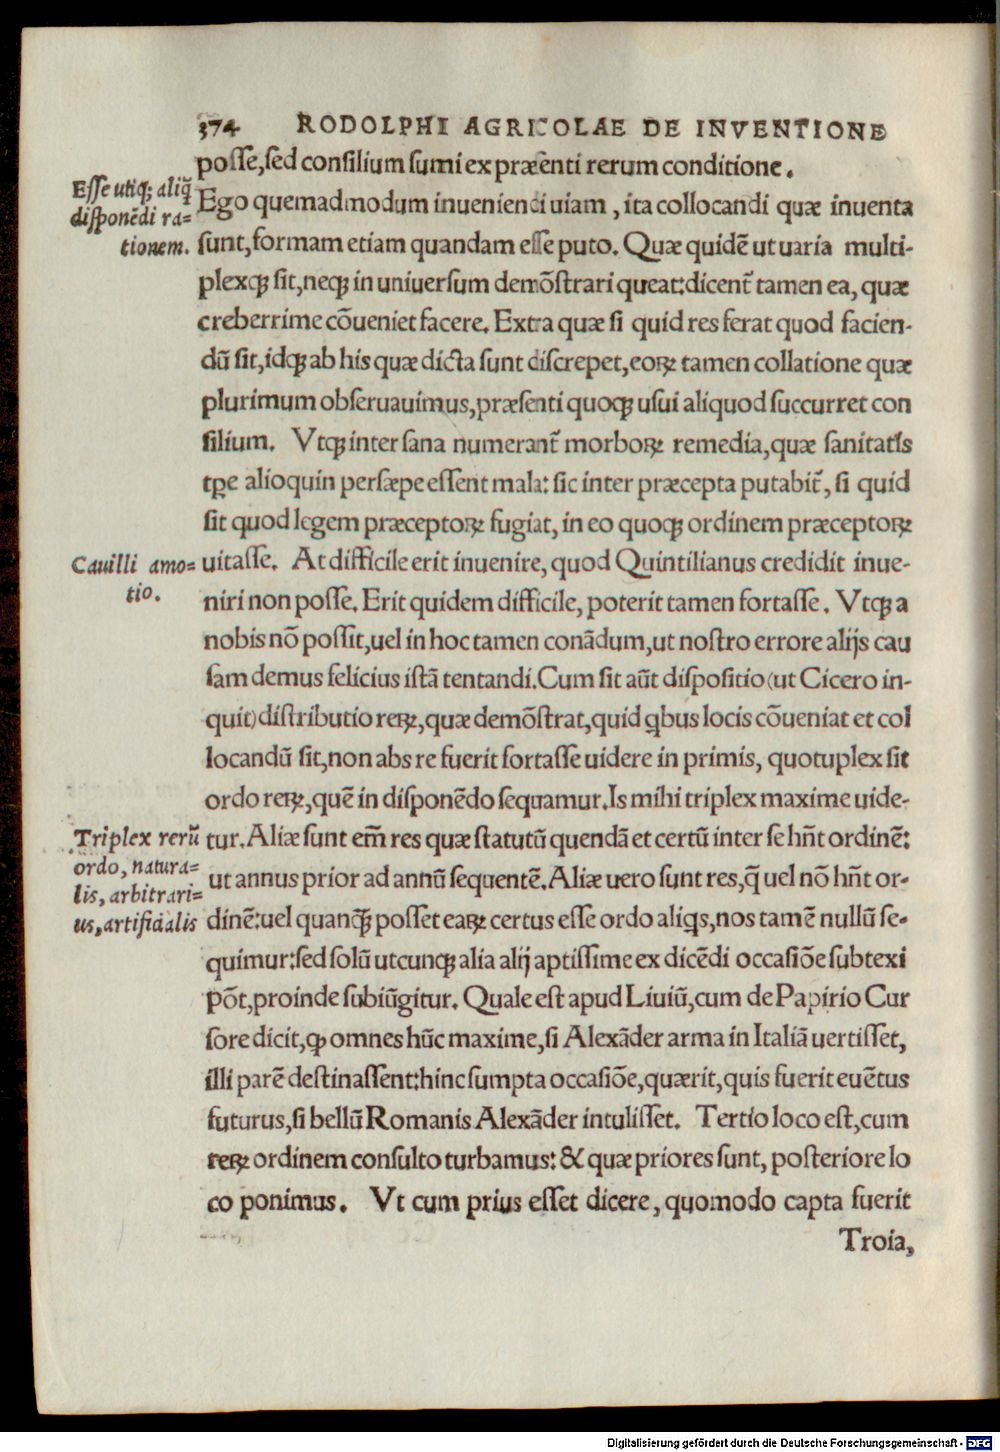 374 RODOLPHI AGRICOLAE DE INVENTIONE
posse, sed consilium sumi ex præsenti rerum conditione.
Esse utiqꝫ aliq̃
disponẽdi ra=
tionem.
Ego quemadmodum inueniendi uiam, ita collocandi quæ inuenta
sunt, formam etiam quandam esse puto. Quæ quidẽ ut uaria multi-
plexqꝫ sit, neqꝫ in uniuersum demõstrari queat: dicent̃ tamen ea, quæ
creberrime cõueniet facere. Extra quæ si quid res ferat quod facien-
dũ sit, idqꝫ ab his quæ dicta sunt discrepet, eoꝝ tamen collatione quæ
plurimum obseruauimus, præsenti quoqꝫ usui aliquod succurret con
silium. Vtqꝫ inter sana numerant̃ morboꝝ remedia, quæ sanitatis
tꝑe alioquin persæpe essent mala: sic inter præcepta putabit̃, si quid
sit quod legem præceptoꝝ fugiat, in eo quoqꝫ ordinem præceptoꝝ
Cauilli amo=
tio.
uitasse. At difficile erit inuenire, quod Quintilianus credidit inue-
niri non posse. Erit quidem difficile, poterit tamen fortasse. Vtqꝫ a
nobis nõ possit, uel in hoc tamen conãdum, ut nostro errore alijs cau
sam demus felicius istã tentandi. Cum sit aũt dispositio (ut Cicero in-
quit) distributio reꝝ, quæ demõstrat, quid q̇bus locis cõueniat et col
locandũ sit, non abs re fuerit fortasse uidere in primis, quotuplex sit
ordo reꝝ, quẽ in disponẽdo sequamur. Is mihi triplex maxime uide-
Triplex rerũ
ordo, natura=
lis, arbitrari=
us, artificialis
tur. Aliæ sunt em̃ res quæ statutũ quendã et certũ inter se hñt ordinẽ:
ut annus prior ad annũ sequentẽ. Aliæ uero sunt res, q̃ uel nõ hñt or-
dinẽ: uel quanq̃ꝫ posset eaꝝ certus esse ordo aliq̇s, nos tamẽ nullũ se-
quimur: sed solũ utcunqꝫ alia alij aptissime ex dicẽdi occasiõe subtexi
põt, proinde subiũgitur. Quale est apud Liuiũ, cum de Papirio Cur
sore dicit, ꝙ omnes hũc maxime, si Alexãder arma in Italiã uertisset,
illi parẽ destinassent: hinc sumpta occasiõe, quærit, quis fuerit euẽtus
futurus, si bellũ Romanis Alexãder intulisset. Tertio loco est, cum
reꝝ ordinem consulto turbamus: & quæ priores sunt, posteriore lo
co ponimus. Vt cum prius esset dicere, quomodo capta fuerit
Troia,
Digitalisierung gefördert durch die Deutsche Forschungsgemeinschaft - DFG